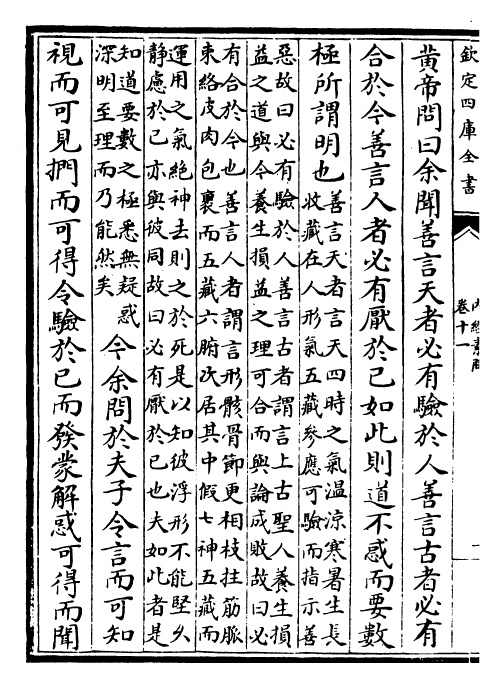 欽定四庫全書
內經素問
卷十一
黄帝問曰余聞善言天者必有驗於人善言古者必有
合於今善言人者必有厭於已如此則道不惑而要數
極所謂明也
善言天者言天四時之氣溫涼寒暑生長
收藏在人形氣五藏參應可驗而指示善
惡故曰必有驗於人善言古者謂言上古聖人養生損
益之道與今養生損益之理可合而與論成敗故曰必
有合於今也善言人者謂言形骸骨節更相枝拄筋脈
束絡皮肉包裹而五藏六腑次居其中假七神五藏而
運用之氣絶神去則之於死是以知彼浮形不能堅久
静慮於已亦與彼同故曰必有厭於已也夫如此者是
知道要數之極悉無疑惑
深明至理而乃能然矣
今余問於夫子令言而可知
視而可見捫而可得令驗於已而發蒙解惑可得而聞